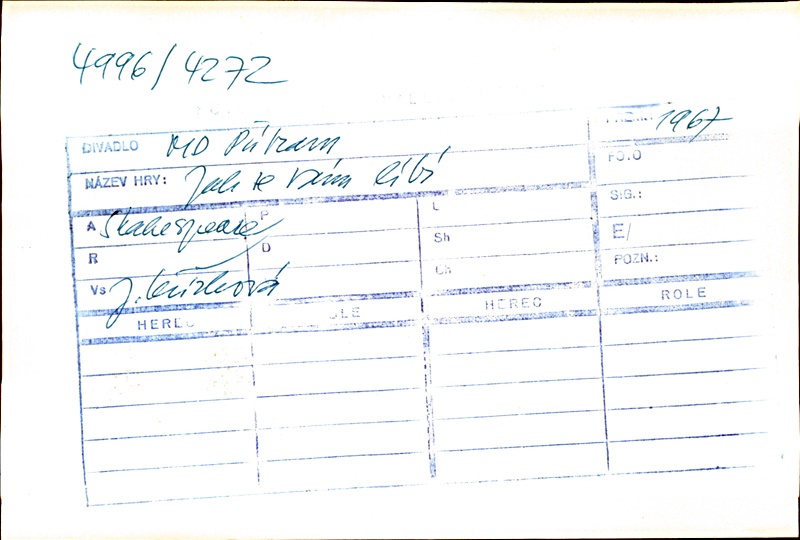 4996/4272
DIVADLO MD Příbram 1967
NÁZEV HRY: Jak se vám líbí FO.O
A Shakespeare P L S:G.:
R D Sh E/
Vs J. Ch POZN.:
HEREC HEREC ROLE